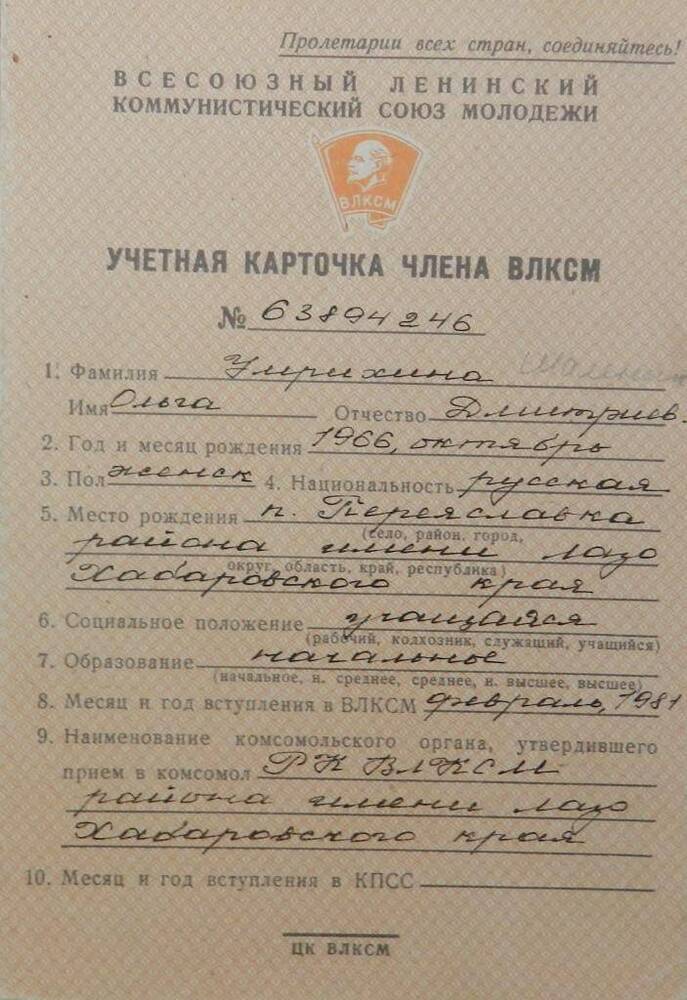 Пролетарии всех стран, соединяйтесь!
ВСЕСОЮЗНЫЙ ЛЕНИНСКИЙ
КОММУНИСТИЧЕСКИЙ СОЮЗ МОЛОДЕЖИ
ВЛКСМ
УЧЕТНАЯ КАРТОЧКА ЧЛЕНА ВЛКСМ
№ 63894246
1. Фамилия Умрихина
Имя Ольга Отчество Дмитриев.
2. Год и месяц рождения 1966, октябрь
3. Пол женск 4. Национальность русская
5. Место рождения п. Переяславка
(село, район, город,
района имени Лазо
округ, область, край, республика)
Хабаровского края
6. Социальное положение учащаяся
(рабочий, колхозник, служащий, учащийся)
7. Образование начальное
(начальное, н. среднее, среднее, н. высшее, высшее)
8. Месяц и год вступления в ВЛКСМ февраль, 1981
9. Наименование комсомольского органа, утвердившего
прием в комсомол РК ВЛКСМ
района имени Лазо
Хабаровского края
10. Месяц и год вступления в КПСС
ЦК ВЛКСМ